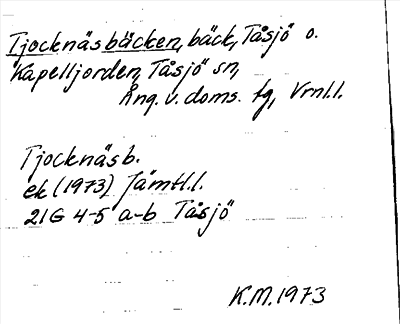 Tjocknäsbäcken, bäck, Tåsjö o.
Kapelljorden, Tåsjö sn,
Ång. v. doms. tg, Vrnl.l.
Tjocknäsb.
ek (1973) Jämtl.l.
21G 4-5 a-b Tåsjö
K.M. 1973